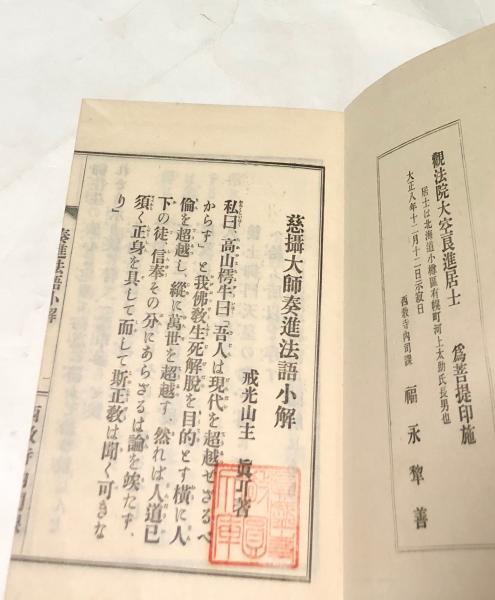 觀法院大空良進居士 爲菩提印施
居士は北海道小樽區有幌町河上太助氏長男也
大正八年十二月十二日示寂日
西教寺内司課 福永犂善
慈攝大師奏進法語小解
戒光山主 眞 著
私曰、高山樗牛曰「吾人は現代を超越せざるべ
からず」と我佛教生死解脫を目的とす橫に人
倫を超越し、縱に萬世を超越す、然れは人道已
下の徒、信奉その分にあらざるは論を竢たず、
須く正身を具して而して斯正教は聞く可きな
り」
奏進法語小解
一